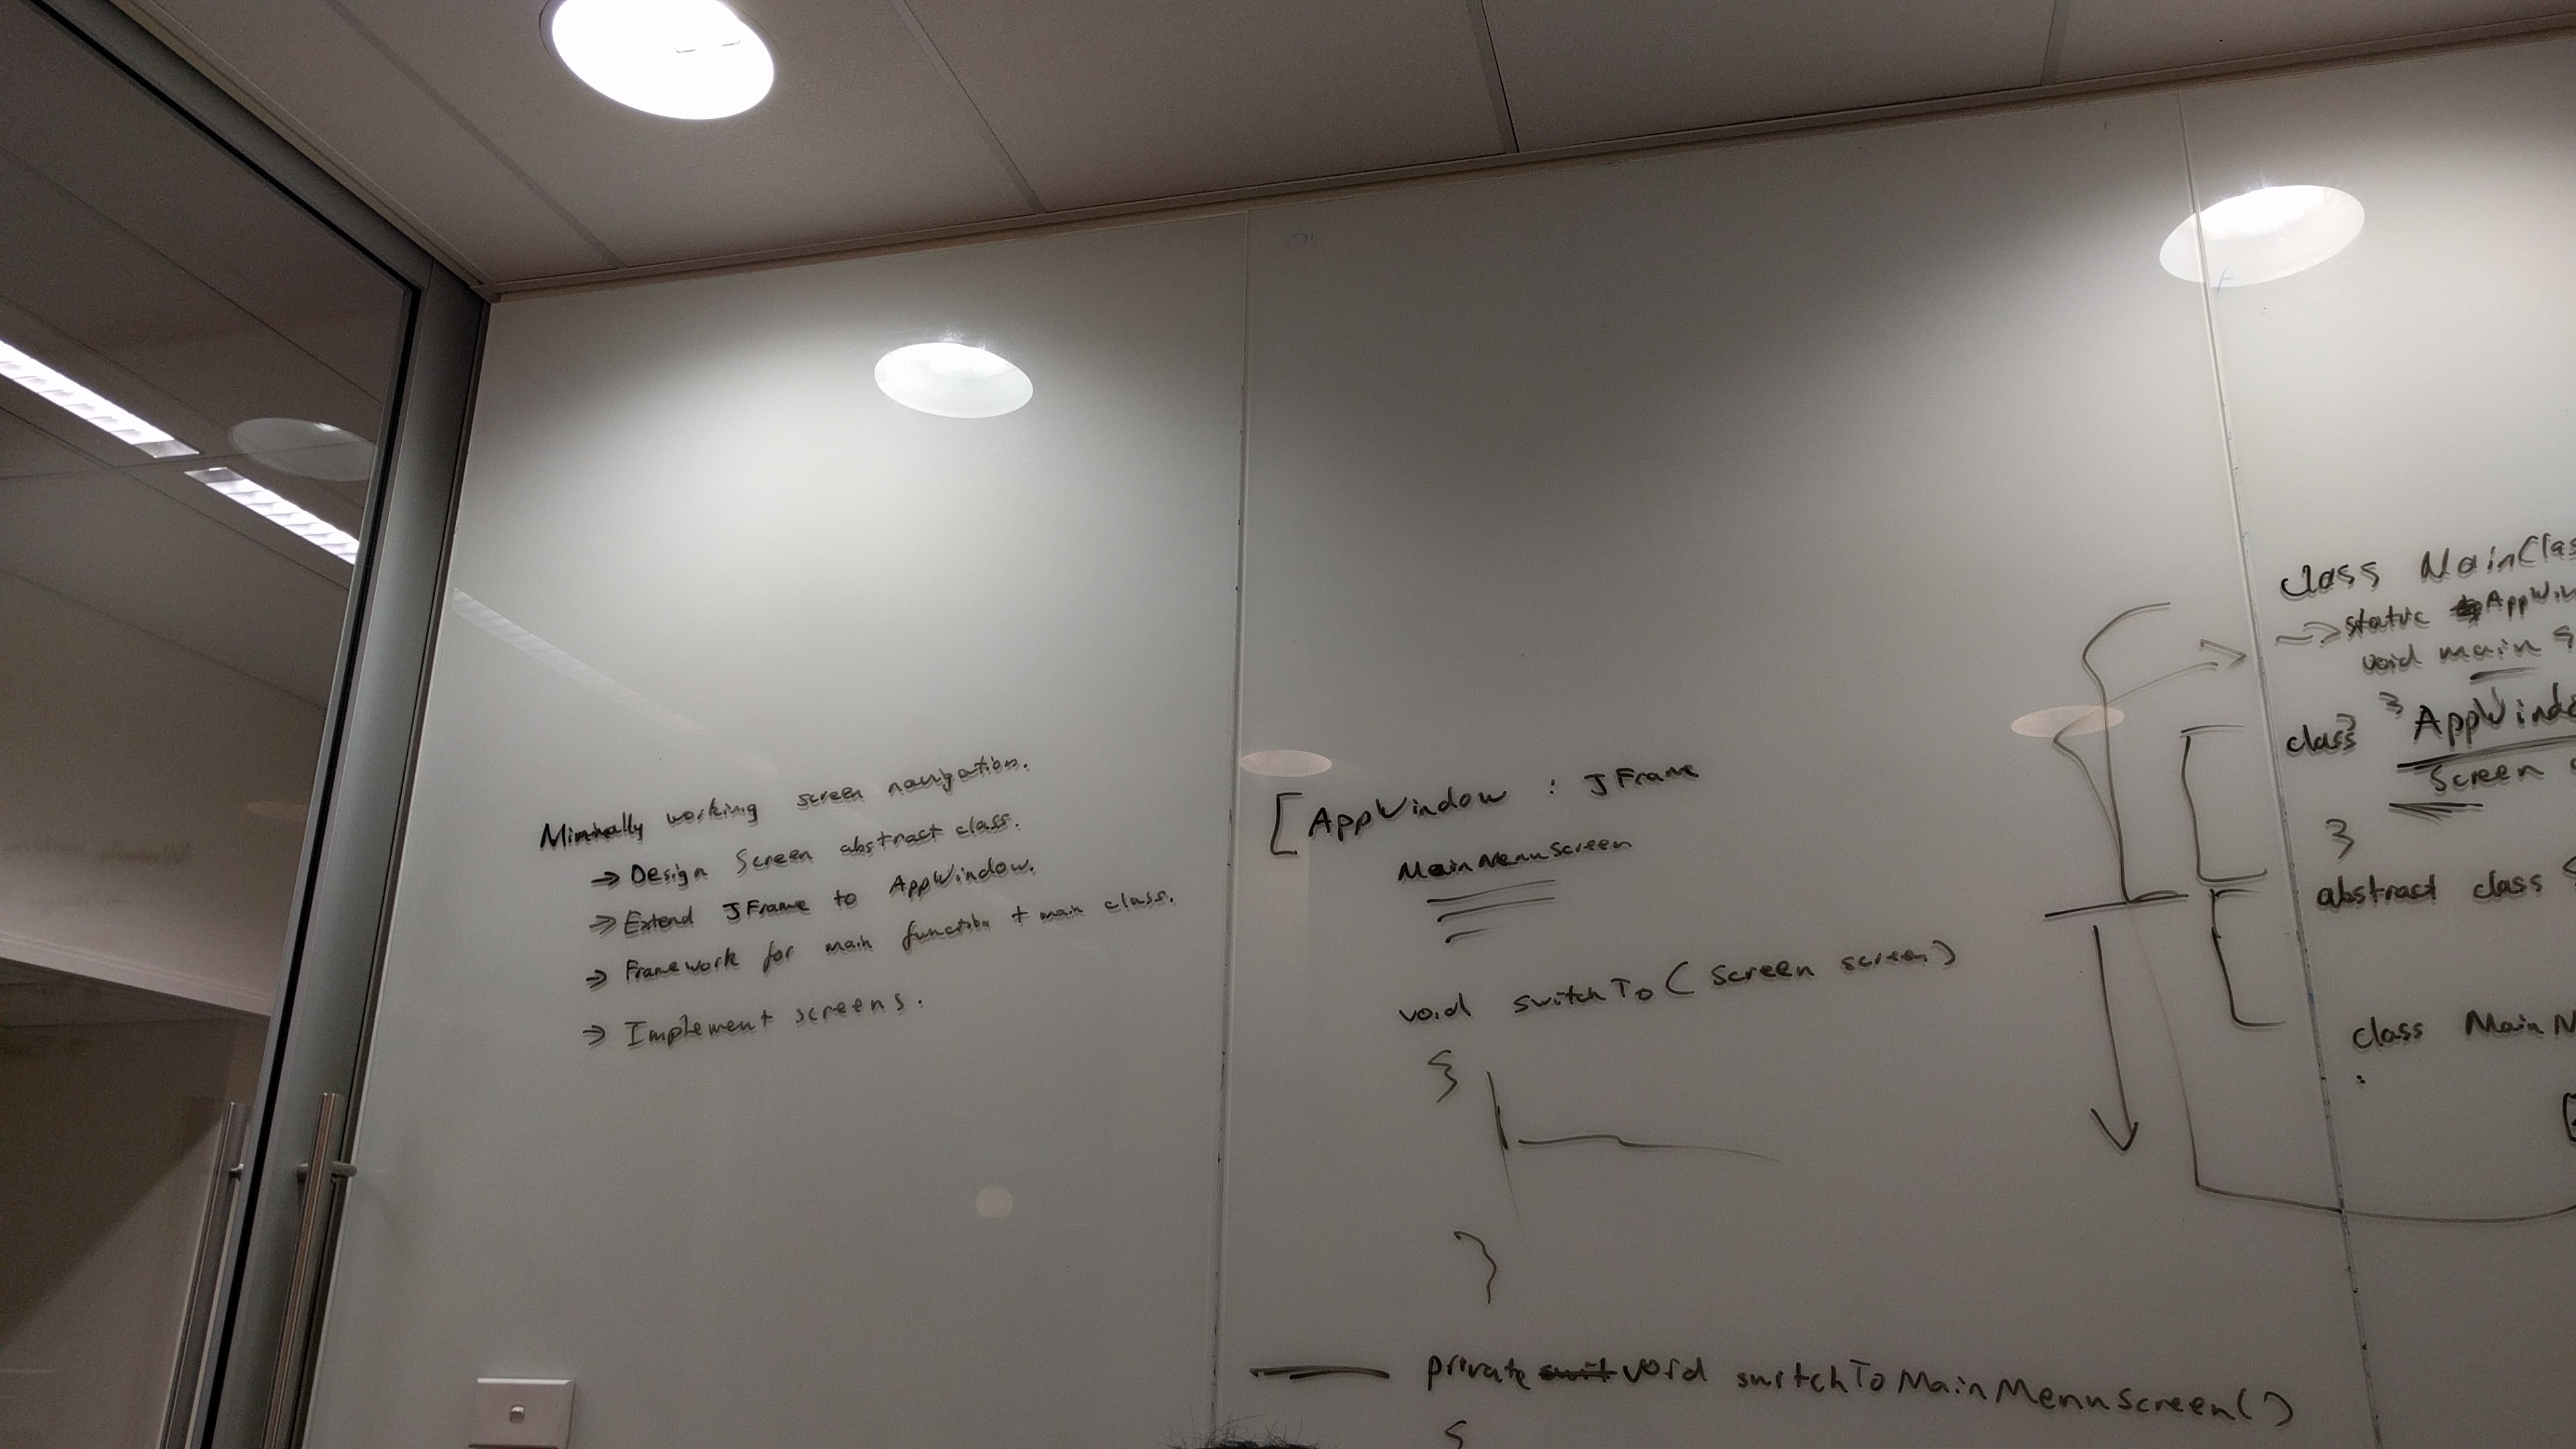 Minimally working screen navigation.
→ Design Screen abstract class.
→ Extend JFrame to AppWindow.
→ Framework for main function + main class.
→ Implement screens.
[AppWindow : JFrame
MainMenuScreen
void switchTo ( Screen screen)
{
}
private swit void switchToMainMenuScreen()
{
class MainClas
→ static AppWin
void main {
}
class } AppWindo
Screen
}
abstract class
class MainM
: